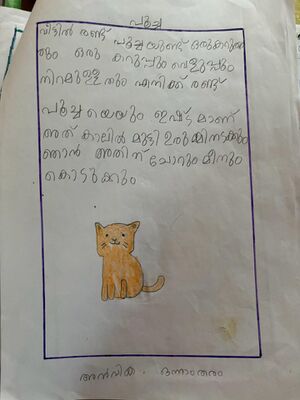 പൂച്ച
വീട്ടിൽ രണ്ട് പൂച്ചയുണ്ട് ഒരുകറുത്ത
തും ഒരു കറുപ്പും വെളുപ്പും
നിറമുള്ളതും എനിക്ക് രണ്ട്
പൂച്ചയെയും ഇഷ്ടമാണ്
അത് കാലിൽ മുട്ടി ഉരുമ്മിനടക്കും
ഞാൻ അതിന് ചോറും മീനും
കൊടുക്കും
അൻവിക. ഒന്നാംതരം